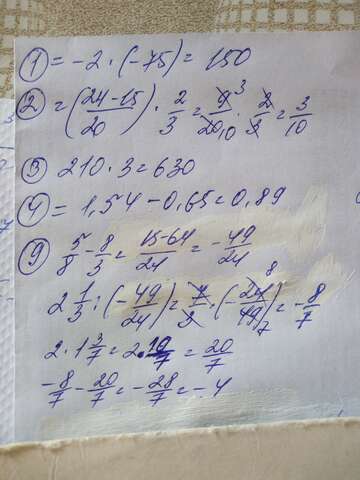 ① = -2 · (-75) = 150
② = (24-15/20) · 2/3 = 9³/20₁₀ · 2/3 = 3/10
③ 210 · 3 = 630
④ = 1,54 - 0,65 = 0,89
⑨ 5/8 - 8/3 = 15-64/24 = -49/24
2 1/3 : (-49/24) = 7/3 · (-24⁸/49₇) = -8/7
2 · 1 3/7 = 2 · 10/7 = 20/7
-8/7 - 20/7 = -28/7 = -4